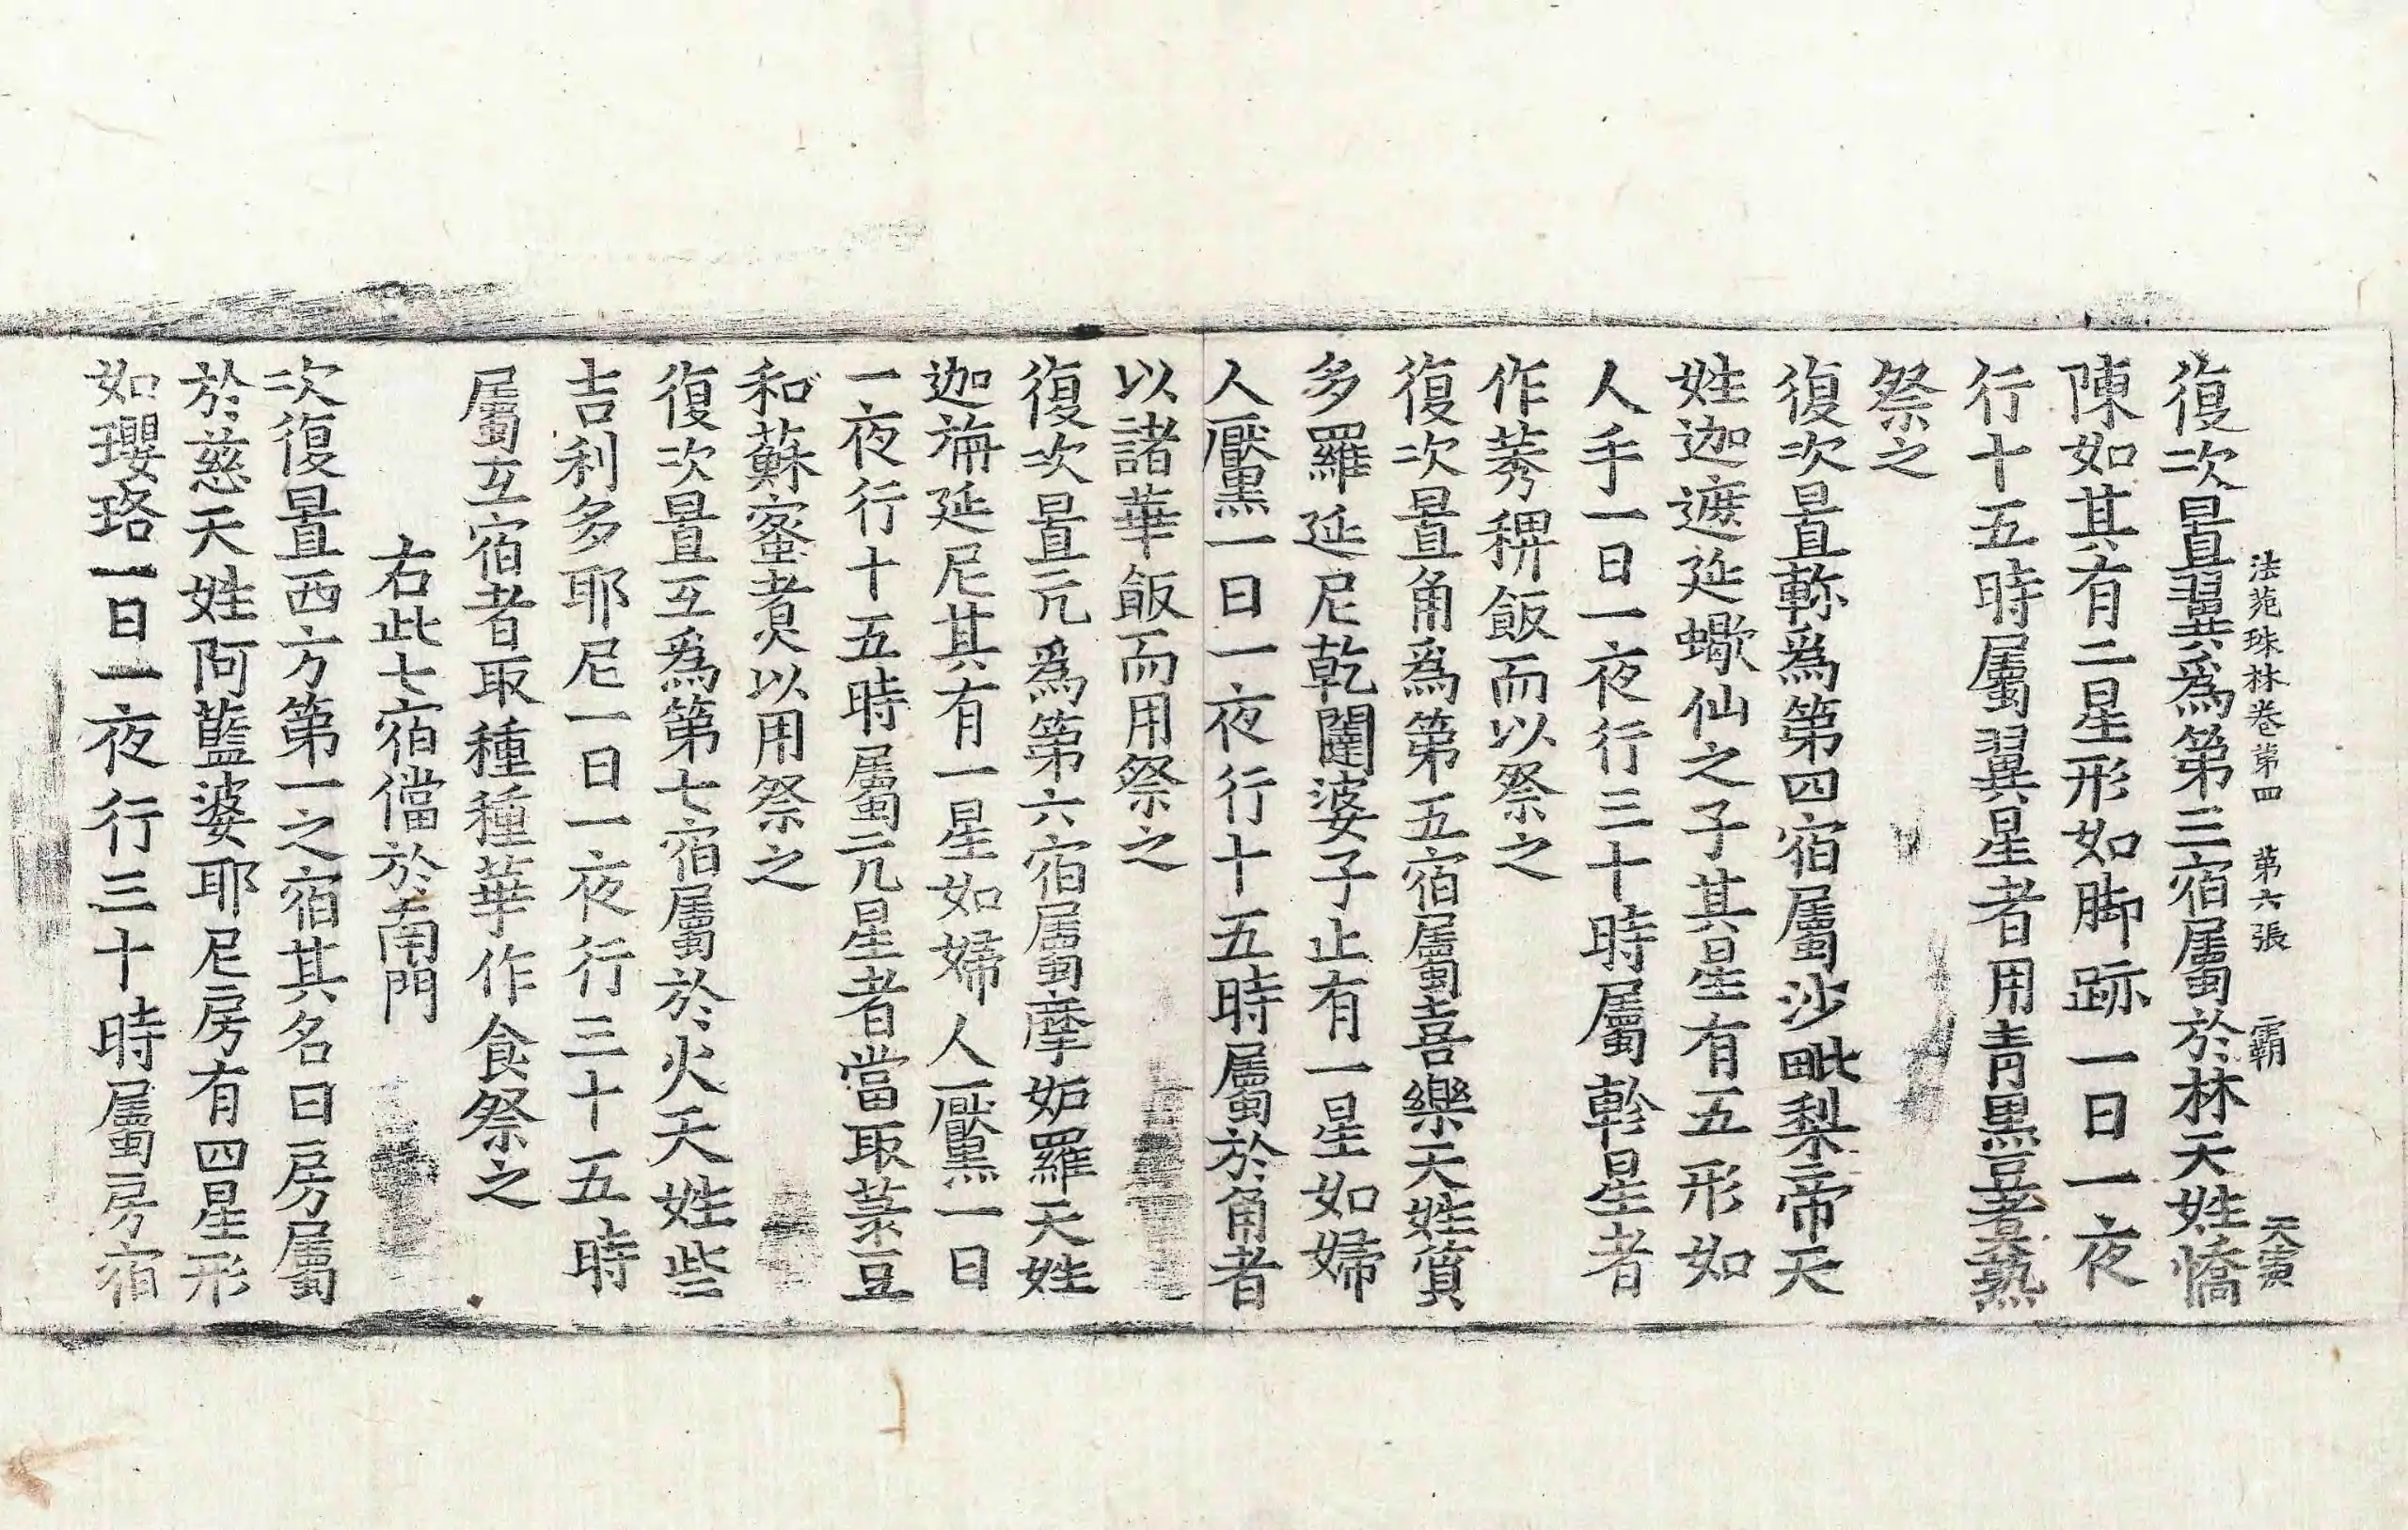 法苑珠林卷第四 第六張 霸 天寅
復次置翼爲第三宿屬於林天姓憍
陳如其有二星形如脚跡一日一夜
行十五時屬翼星者用青黑豆煑熟
祭之
復次置軫爲第四宿屬沙毗梨帝天
姓迦遮延蠍仙之子其星有五形如
人手一日一夜行三十時屬軫星者
作莠稗飯而以祭之
復次置角爲第五宿屬喜樂天姓質
多羅延尼乾闥婆子止有一星如婦
人黶一日一夜行十五時屬於角者
以諸華飯而用祭之
復次置亢爲第六宿屬摩妬羅天姓
迦旃延尼其有一星如婦人黶一日
一夜行十五時屬亢星者當取菉豆
和蘇蜜煑以用祭之
復次置互爲第七宿屬於火天姓些
吉利多耶尼一日一夜行三十五時
屬互宿者取種種華作食祭之
右此七宿儅於南門
次復置西方第一之宿其名曰房屬
於慈天姓阿藍婆耶尼房有四星形
如瓔珞一日一夜行三十時屬房宿